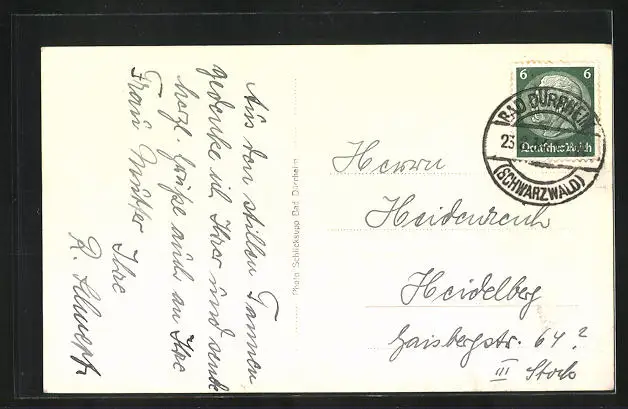 Aus den stillen Tannen,
gedenke ich Ihrer und sende
herzl. Grüße auch an Ihre
Frau Mutter Ihre
R.
Photo Schlicksupp Bad Dürrheim
6 6
Deutsches Reich
BAD DÜRRHEIM
23
(SCHWARZWALD)
Herrn
Heidenreich
Heidelberg
Gaisbergstr. 64?
III Stock